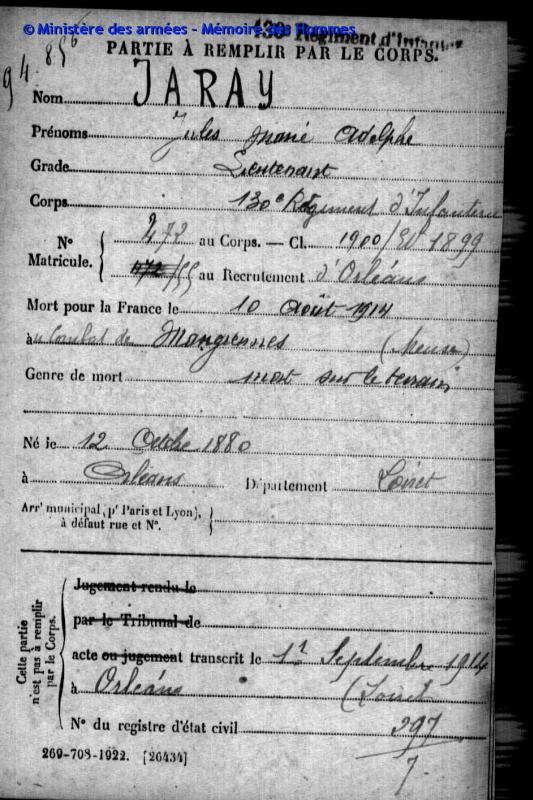 © Ministère des armées - Mémoire des Hommes
130e Régiment d'Infanterie
PARTIE À REMPLIR PAR LE CORPS.
94.856
Nom JARAY
Prénoms Jules Marie Adolphe
Grade Lieutenant
Corps 130e Régiment d'Infanterie
N° Matricule. { 472 au Corps. — Cl. 1900/ 1899
472 /55 au Recrutement d'Orléans
Mort pour la France le 10 Août 1914
à u Combat de Mangiennes (Meuse)
Genre de mort mort sur le terrain
Né le 12 Octobre 1880
à Orléans Département Loiret
Arr' municipal, p' Paris et Lyon), à défaut rue et N°. }
Cette partie n'est pas à remplir par le Corps.
Jugement rendu le
par le Tribunal de
acte ou jugement transcrit le 1er Septembre 1914
à Orléans (Loiret
N° du registre d'état civil 297
7
269-708-1922. [26434]